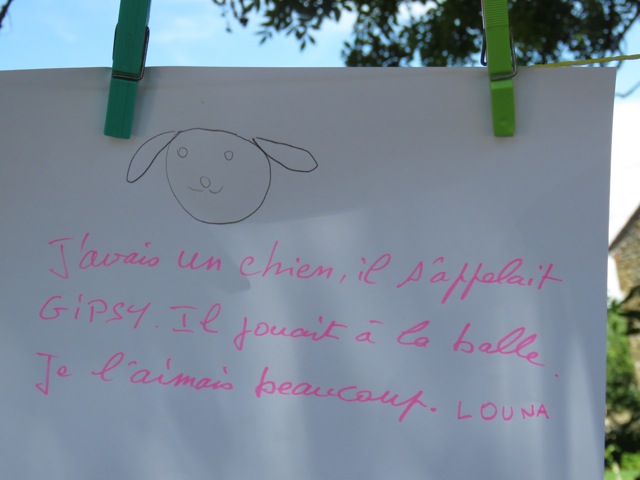 J'avais un chien, il s'appelait
GiPSY. Il jouait à la balle.
Je l'aimais beaucoup. LOUNA